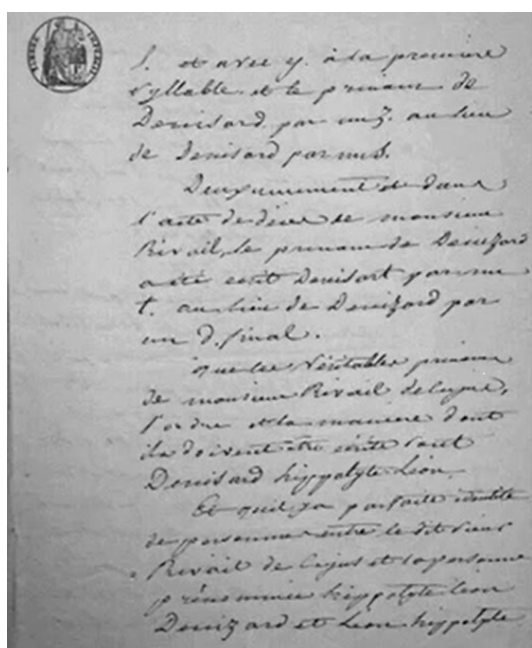 TIMBRE IMPERIAL
l. et avec y. à la première
syllable et le prénom de
Denisard par un z. au lieu
de Denisard par un s.
Deuxiemement et dans
l'acte de décès de monsieur
Rivail, le prénom de Denizard
a été écrit Denisart par un
t. au lieu de Denizard par
un d. final.
que les véritables prénoms
de monsieur Rivail de cujus,
l'ordre et la manière dont
ils doivent être écrits sont
Denisard hippolyte Léon
Et qu'il y a parfaite identité
de personnes entre le dit sieur
Rivail de cujus et la personne
prénommée hippolyte Leon
Denizard et Leon hippolyte